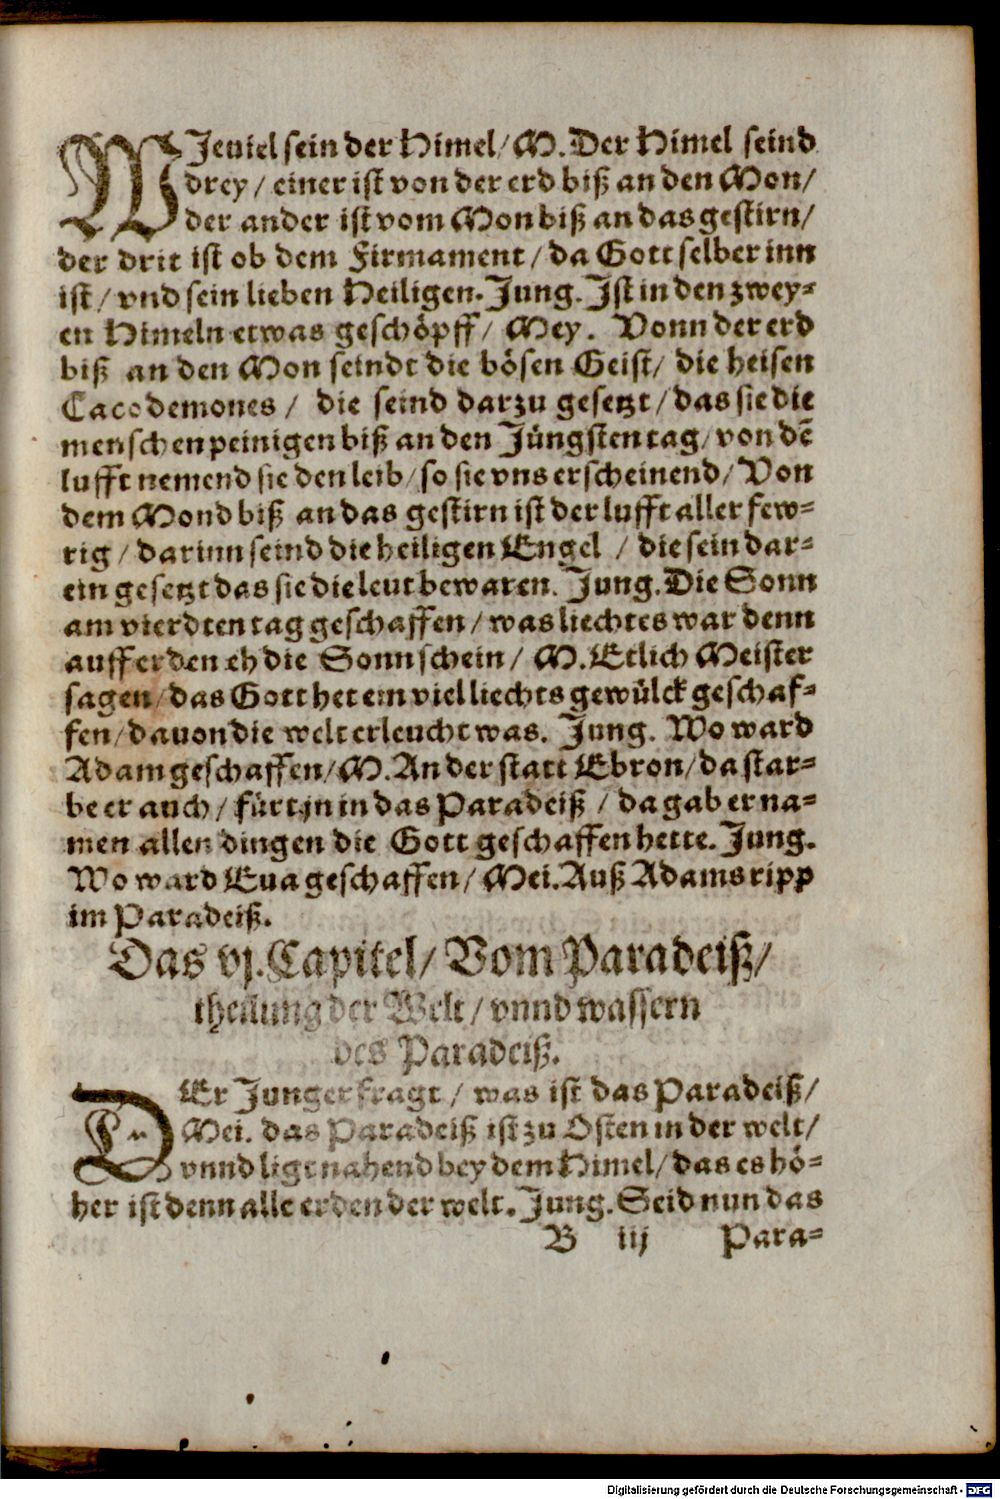 WJeuiel sein der Himel / M. Der Himel seind
drey / einer ist von der erd biß an den Mon /
der ander ist vom Mon biß an das gestirn /
der drit ist ob dem Firmament / da Gott selber inn
ist / vnd sein lieben Heiligen. Jung. Jst in den zwey-
en Himeln etwas geschöpff / Mey. Vonn der erd
biß an den Mon seindt die bösen Geist / die heisen
Cacodemones / die seind darzu gesetzt / das sie die
menschen peinigen biß an den Jüngsten tag / von dē
lufft nemend sie den leib / so sie vns erscheinend / Von
dem Mond biß an das gestirn ist der lufft aller few-
rig / darinn seind die heiligen Engel / die sein dar-
ein gesetzt das sie die leut bewaren. Jung. Die Sonn
am vierdten tag geschaffen / was liechtes war denn
auff erden eh die Sonn schein / M. Etlich Meister
sagen / das Gott het ein viel liechts gewülck geschaf-
fen / dauon die welt erleucht was. Jung. Wo ward
Adam geschaffen / M. An der statt Ebron / da star-
be er auch / fürt jn in das Paradeiß / da gab er na-
men allen dingen die Gott geschaffen hette. Jung.
Wo ward Eua geschaffen / Mei. Auß Adams ripp
im Paradeiß.
Das vj. Capitel / Vom Paradeiß /
theilung der Welt / vnnd wassern
des Paradeiß.
DEr Junger fragt / was ist das Paradeiß /
Mei. das Paradeiß ist zu Osten in der welt /
vnnd ligt nahend bey dem Himel / das es hö-
her ist denn alle erden der welt. Jung. Seid nun das
B iij Para-
Digitalisierung gefördert durch die Deutsche Forschungsgemeinschaft - DFG